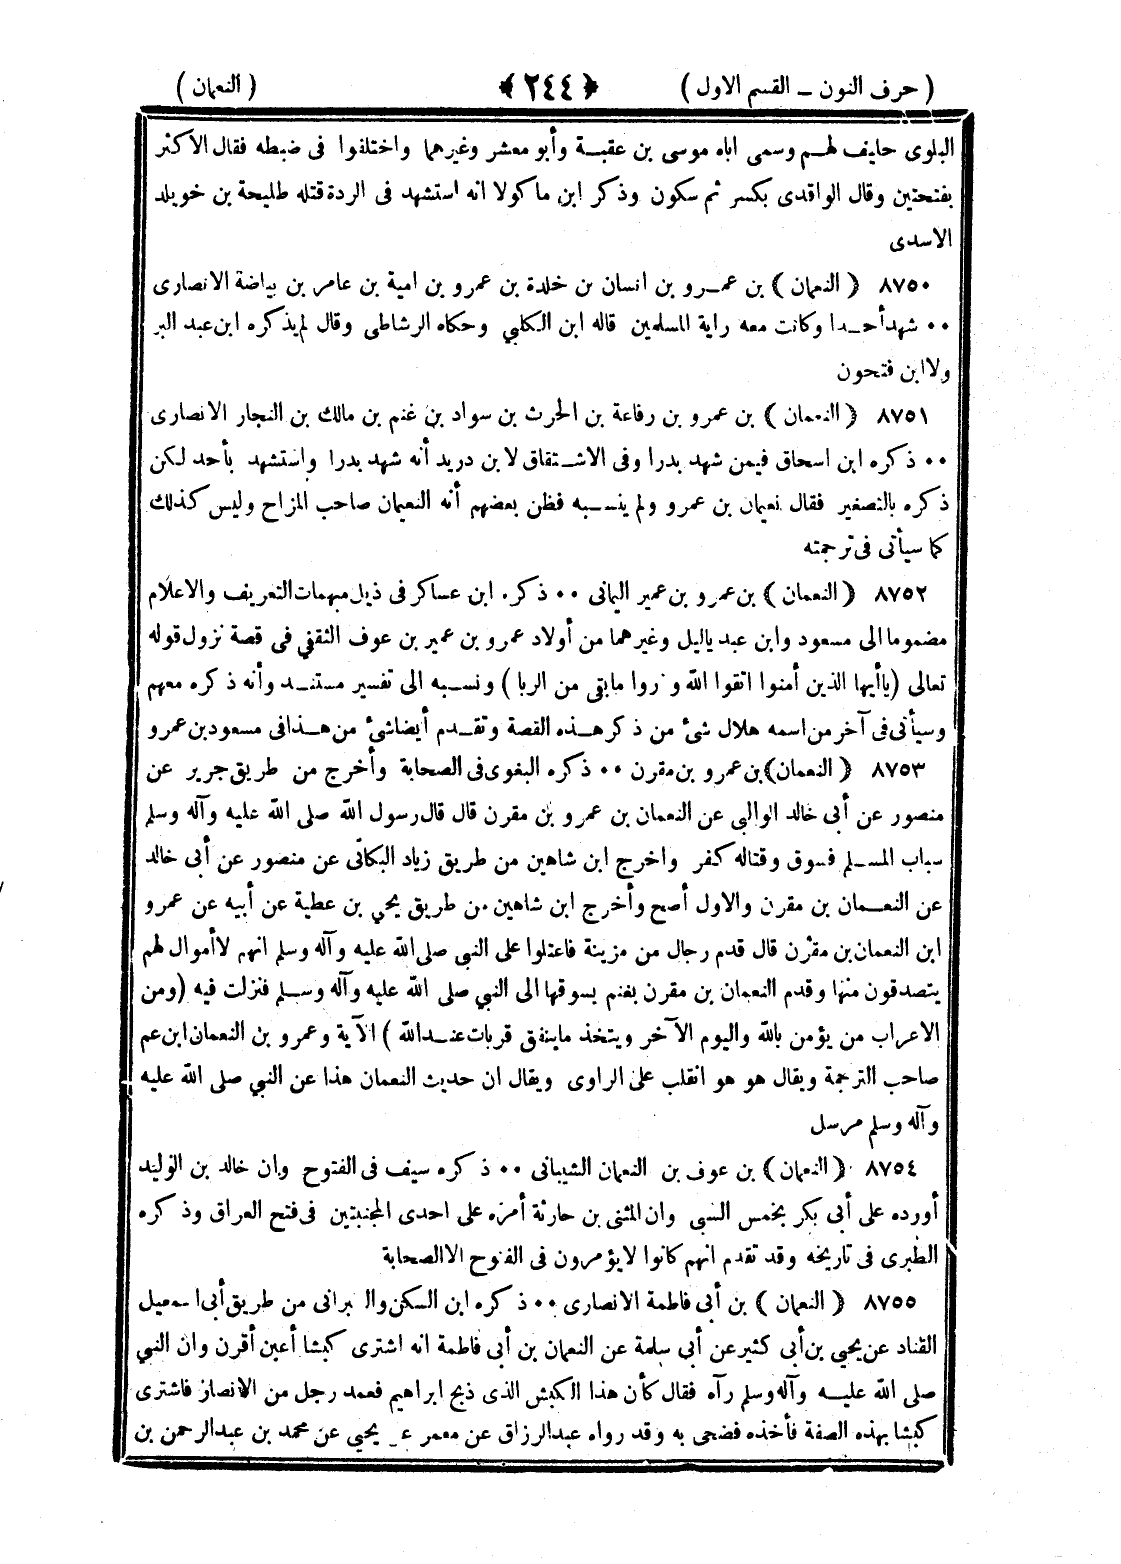 ( حرف النون ــ القسم الاول ) ﴿ ٢٤٤ ﴾ ( النعمان )
البلوى حليف لهم وسمى اباه موسى بن عقبة وأبو معشر وغيرهما واختلفوا فى ضبطه فقال الاكثر
بفتحتين وقال الواقدى بكسر ثم سكون وذكر ابن ماكولا انه استشهد فى الردة قتله طليحة بن خويلد
الاسدى
٨٧٥٠ ( النعمان ) بن عمرو بن انسان بن خلدة بن عمرو بن امية بن عامر بن بياضة الانصارى
٠٠ شهد أحدا وكانت معه راية المسلمين قاله ابن الكلبي وحكاه الرشاطى وقال لم يذكره ابن عبد البر
ولا ابن فتحون
٨٧٥١ ( النعمان ) بن عمرو بن رفاعة بن الحرث بن سواد بن غنم بن مالك بن النجار الانصارى
٠٠ ذكره ابن اسحاق فيمن شهد بدرا وفى الاشتقاق لابن دريد أنه شهد بدرا واستشهد بأحد لكن
ذكره بالتصغير فقال نعيمان بن عمرو ولم ينسبه فظن بعضهم أنه النعيمان صاحب المزاح وليس كذلك
كما سيأتى فى ترجمته
٨٧٥٢ ( النعمان ) بن عمرو بن عمير اليمانى ٠٠ ذكره ابن عساكر فى ذيل مبهمات التعريف والاعلام
مضموما الى مسعود وابن عبد ياليل وغيرهما من أولاد عمرو بن عمير بن عوف الثقفي فى قصة نزول قوله
تعالى (ياأيها الذين أمنوا اتقوا الله وذروا مابقى من الربا ) ونسبه الى تفسير مستند وأنه ذكره معهم
وسيأتى فى آخر من اسمه هلال شئ من ذكر هذه القصة وتقدم أيضا شئ من هذا فى مسعود بن عمرو
٨٧٥٣ ( النعمان) بن عمرو بن مقرن ٠٠ ذكره البغوى فى الصحابة وأخرج من طريق جرير عن
منصور عن أبى خالد الوالبى عن النعمان بن عمرو بن مقرن قال قال رسول الله صلى الله عليه وآله وسلم
سباب المسلم فسوق وقتاله كفر واخرج ابن شاهين من طريق زياد البكائى عن منصور عن أبى خالد
عن النعمان بن مقرن والاول أصح وأخرج ابن شاهين من طريق يحيى بن عطية عن أبيه عن عمرو
ابن النعمان بن مقرن قال قدم رجال من مزينة فاعتلوا على النبى صلى الله عليه وآله وسلم انهم لا أموال لهم
يتصدقون منها وقدم النعمان بن مقرن بغنم يسوقها الى النبي صلى الله عليه وآله وسلم فنزلت فيه (ومن
الاعراب من يؤمن بالله واليوم الآخر ويتخذ ماينفق قربات عند الله ) الآية وعمرو بن النعمان ابن عم
صاحب الترجمة ويقال هو هو انقلب على الراوى ويقال ان حديث النعمان هذا عن النبي صلى الله عليه
وآله وسلم مرسل
٨٧٥٤ ( النعمان ) بن عوف بن النعمان الشيبانى ٠٠ ذكره سيف فى الفتوح وان خالد بن الوليد
أورده على أبى بكر بخمس السبي وان المثنى بن حارثة أمره على احدى المجنبتين فى فتح العراق وذكره
الطبرى فى تاريخه وقد تقدم انهم كانوا لايؤمرون فى الفتوح الا الصحابة
٨٧٥٥ ( النعمان ) بن أبى فاطمة الانصارى ٠٠ ذكره ابن السكن والطبرانى من طريق أبى اسمعيل
القناد عن يحيى بن أبى كثير عن أبى سلمة عن النعمان بن أبى فاطمة انه اشترى كبشا أعين أقرن وان النبي
صلى الله عليه وآله وسلم رآه فقال كأن هذا الكبش الذى ذبح ابراهيم فعمد رجل من الانصار فاشترى
كبشا بهذه الصفة فأخذه فضحى به وقد رواه عبد الرزاق عن معمر عن يحيي عن محمد بن عبد الرحمن بن